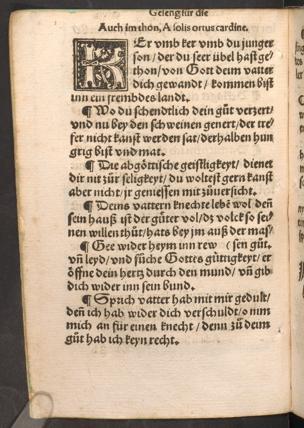 Geseng für die
Auch im thon, A solis ortus cardine.
KEr vmb ker vmb du junger
son / der du seer übel hast ge⸗
thon / von Gott deim vatter
dich gewandt / kommen bist
inn ein frembdes landt.
¶ Wo du schendtlich dein gůt verzert /
vnd nu bey den schweinen genert / der tre⸗
fer nicht kanst werden sat / derhalben hun
grig bist vnd mat.
¶ Die abgötische geistligkeyt / dienet
dir nit zůr seligkeyt / du woltest gern kanst
aber nicht / jr geniessen mit zůuersicht.
¶ Deins vattern knechte lebē wol deñ
sein hauß ist der güter vol / dz volck so sei⸗
nen willen thůt / hats bey jm auß der maß
¶ Gee wider heym inn rew (sen gůt.
vñ leyd / vnd sůche Gottes güttigkeyt / er
öffne dein hertz durch den mund / vñ gib
dich wider inn sein bund.
¶ Sprich vatter hab mit mir gedult /
deñ ich hab wider dich verschuldt / o nim
mich an für einen knecht / denn zů deim
gůt hab ich keyn recht.